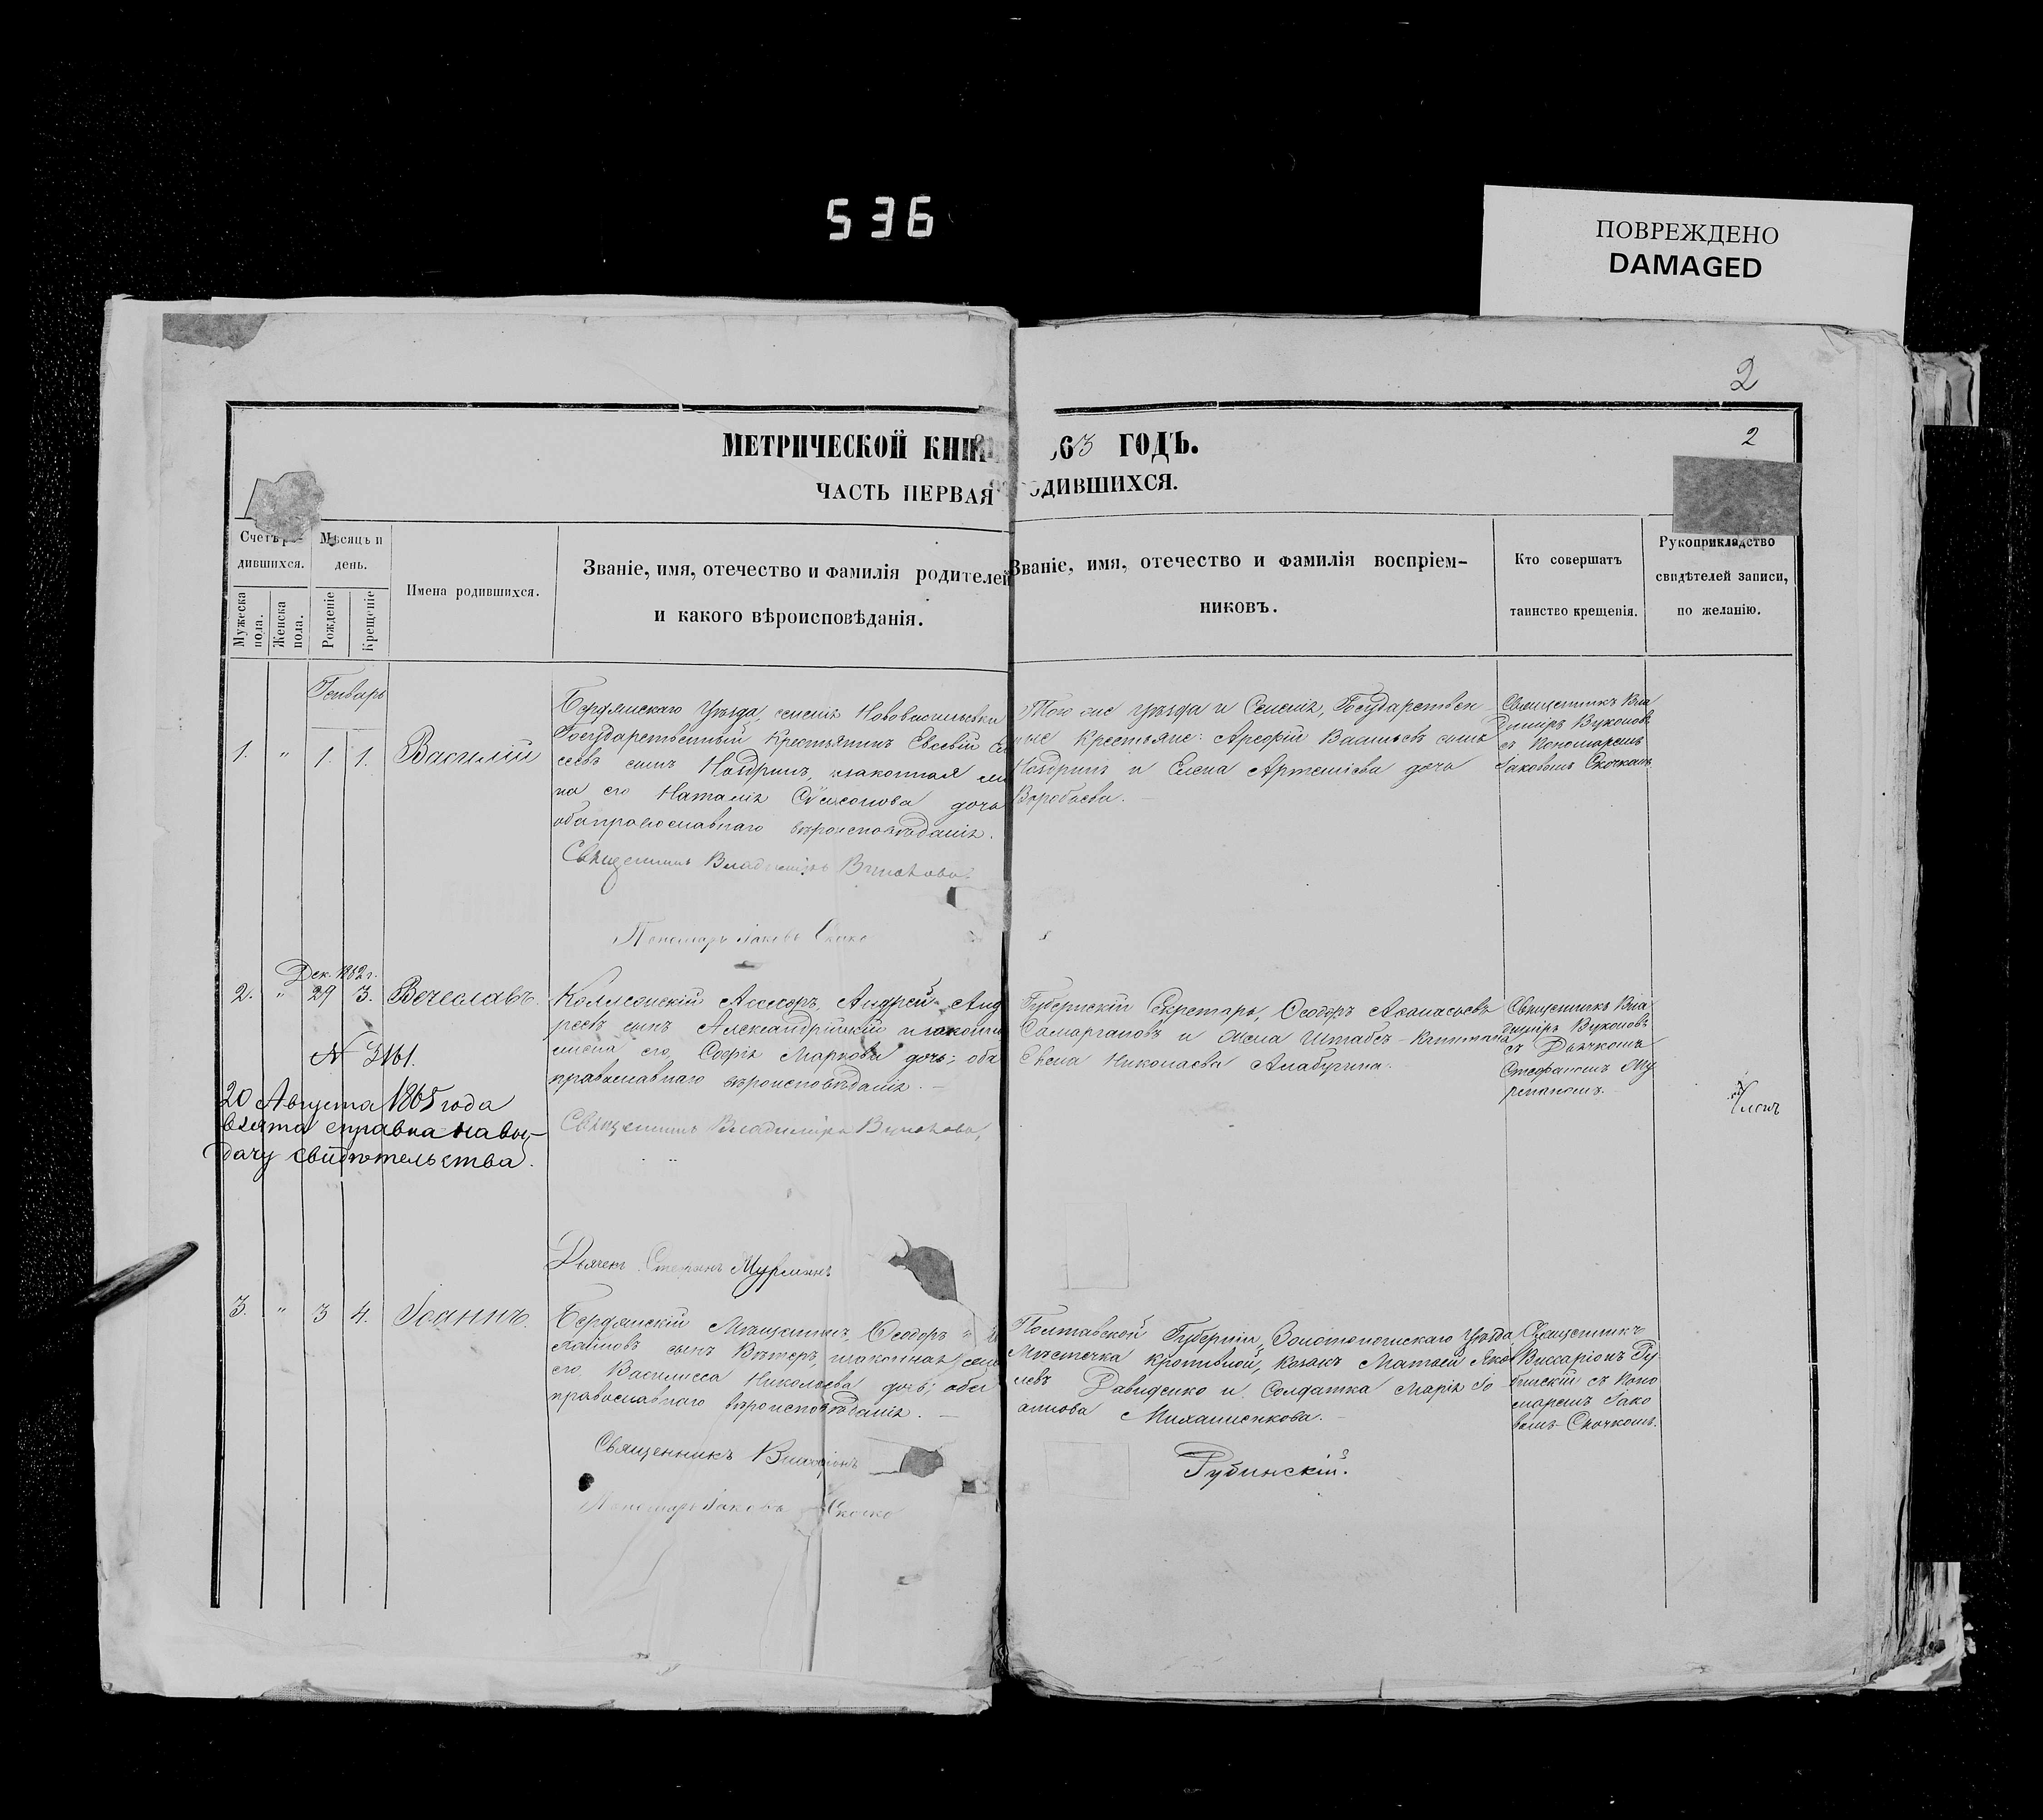 536
ПОВРЕЖДЕНО
DAMAGED
2
МЕТРИЧЕСКОЙ КНИ 63 ГОДЪ.
2
ЧАСТЬ ПЕРВАЯ ОДИВШИХСЯ.
Счетъ ро-
дившихся.
Мужеска пола.
Женска пола.
Мѣсяцъ и
день.
Рожденіе
Крещеніе
Имена родившихся.
Званіе, имя, отечество и фамилія родителей
и какого вѣроисповѣданія.
Званіе, имя, отечество и фамилія воспріем-
никовъ.
Кто совершатъ
таинство крещенія.
Рукоприкладство
свидѣтелей записи,
по желанію.
Генварь
1. " 1. 1. Василій
Бердянскаго Уѣзда, селенія Нововасильевки
Государственный Крестьянинъ Евсевій Ев
сеевъ сынъ Ноздринъ, и законная же
на его Наталія Сѵмеонова дочь
оба православнаго вѣроисповѣданія.
Священникъ Владиміръ
Пономарь Іаковъ
Того же уѣзда и Селенія, Государствен
ные Крестьяне: Арефій Васильевъ сынъ
Ноздринъ и Елена Артеміева дочь
Воробьева.
Священникъ Вла
диміръ Вуколовъ
съ Пономаремъ
Іаковомъ Скочкомъ
Дек. 1862 г.
2. " 29 3. Вечеславъ.
N 2161.
20 Августа 1865 года
взята справка на вы-
дачу свидѣтельства.
Коллежскій Ассесоръ, Андрей Анд
реевъ сынъ Александрійскій и законна
жена его, София Маркова дочь; оба
православнаго вѣроисповѣданія. —
Священникъ Владиміръ
Дьячекъ Стефанъ Мурманъ
Губернскій Секретарь, Ѳеодоръ Аѳанасьевъ
и жена Штабсъ-Капитана
Елена Николаева Алабугина.
Священникъ Вла
диміръ Вуколовъ
съ Дьячкомъ
Стефаномъ Му
рманомъ.
Членъ
3. " 3 4. Іоаннъ.
Бердянскій Мѣщанинъ, Ѳеодоръ
сынъ Вѣтеръ, и законная жена
его, Василисса Николаева дочь; оба
православнаго вѣроисповѣданія. —
Священникъ Виссаріонъ
Пономарь Іаковъ Скочко
Полтавской Губерніи, Золотоношскаго Уѣзда
Мѣстечка Кропивной, казакъ Матѳей Яков
левъ Давиденко и Солдатка Марія Іо
аннова Михайленкова. —
Рубинскій.
Священникъ
Виссаріонъ Ру
бинскій съ Поно
маремъ Іако
вомъ Скочкомъ.